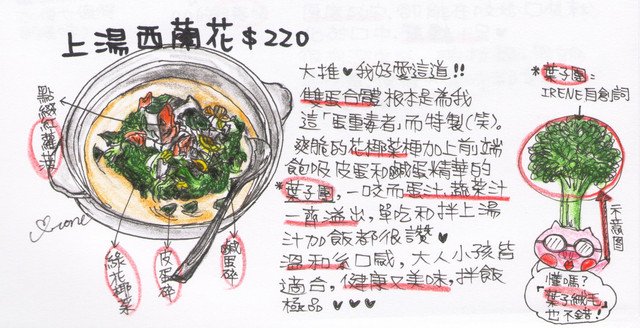 上湯西蘭花$220
點綴紅蘿蔔
綠花椰菜
皮蛋碎
鹹蛋碎
Irene
大推♥我好愛這道!!
雙蛋合體根本是為我
這「蛋重毒者」而特製(笑)。
爽脆的花椰菜梗加上前端
飽吸皮蛋和鹹蛋精華的
*葉子團,一咬而蛋汁、蔬菜汁
一齊溢出,單吃和拌上湯
汁加飯都很讚♥
溫和系口感,大人小孩皆
適合,健康又美味,拌飯
極品♥♥♥
*葉子團=
IRENE自創詞
示意圖
懂嗎?
葉子絨毛
也不錯!